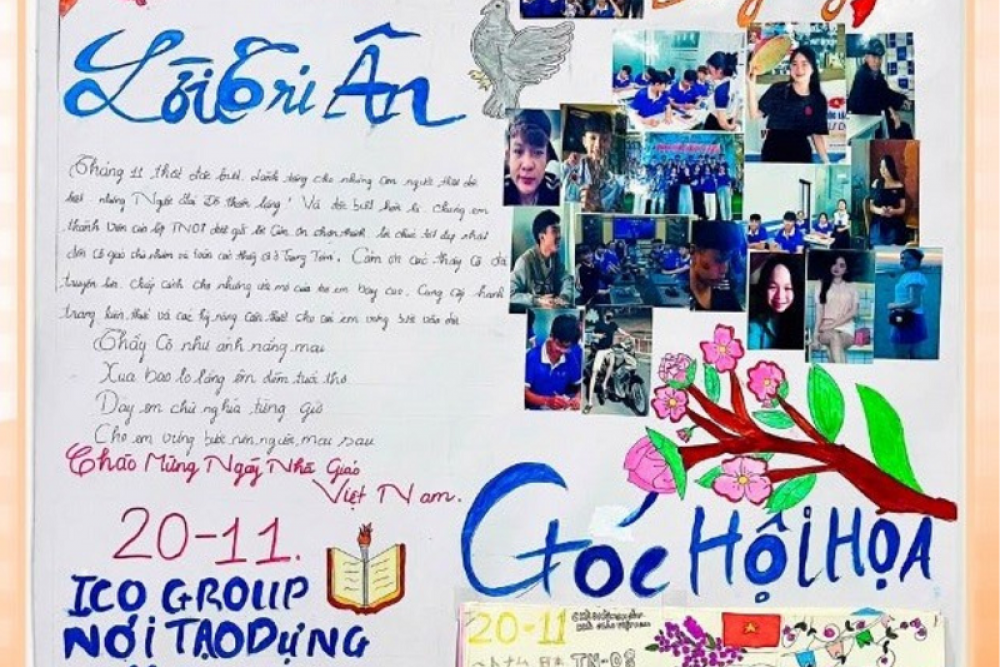 Lời Tri Ân
Tháng 11 thật đặc biệt dành tặng cho những con người thật đặc
biệt những "Người lái Đò thầm lặng" Và đặc biệt hơn là chúng em
thành viên của lớp TN08 gửi lời cảm ơn chân thành, lời chúc tốt đẹp nhất
đến cô giáo chủ nhiệm và toàn các thầy cô ở Trung Tâm. Cảm ơn các thầy cô đã
truyền lửa, chắp cánh cho những ước mơ của em bay cao. Cung cấp hành
trang kiến thức và các kỹ năng cần thiết cho em vững bước vào đời
Thầy Cô như ánh nắng mai
Xua bao lo lắng êm đềm tuổi thơ
Dạy em chữ nghĩa từng giờ
Cho em vững bước nên người mai sau
Chào Mừng Ngày Nhà Giáo
Việt Nam.
20-11.
ICO GROUP
NƠI TẠO DỰNG
Góc HỘI HỌA
20-11
TN-08